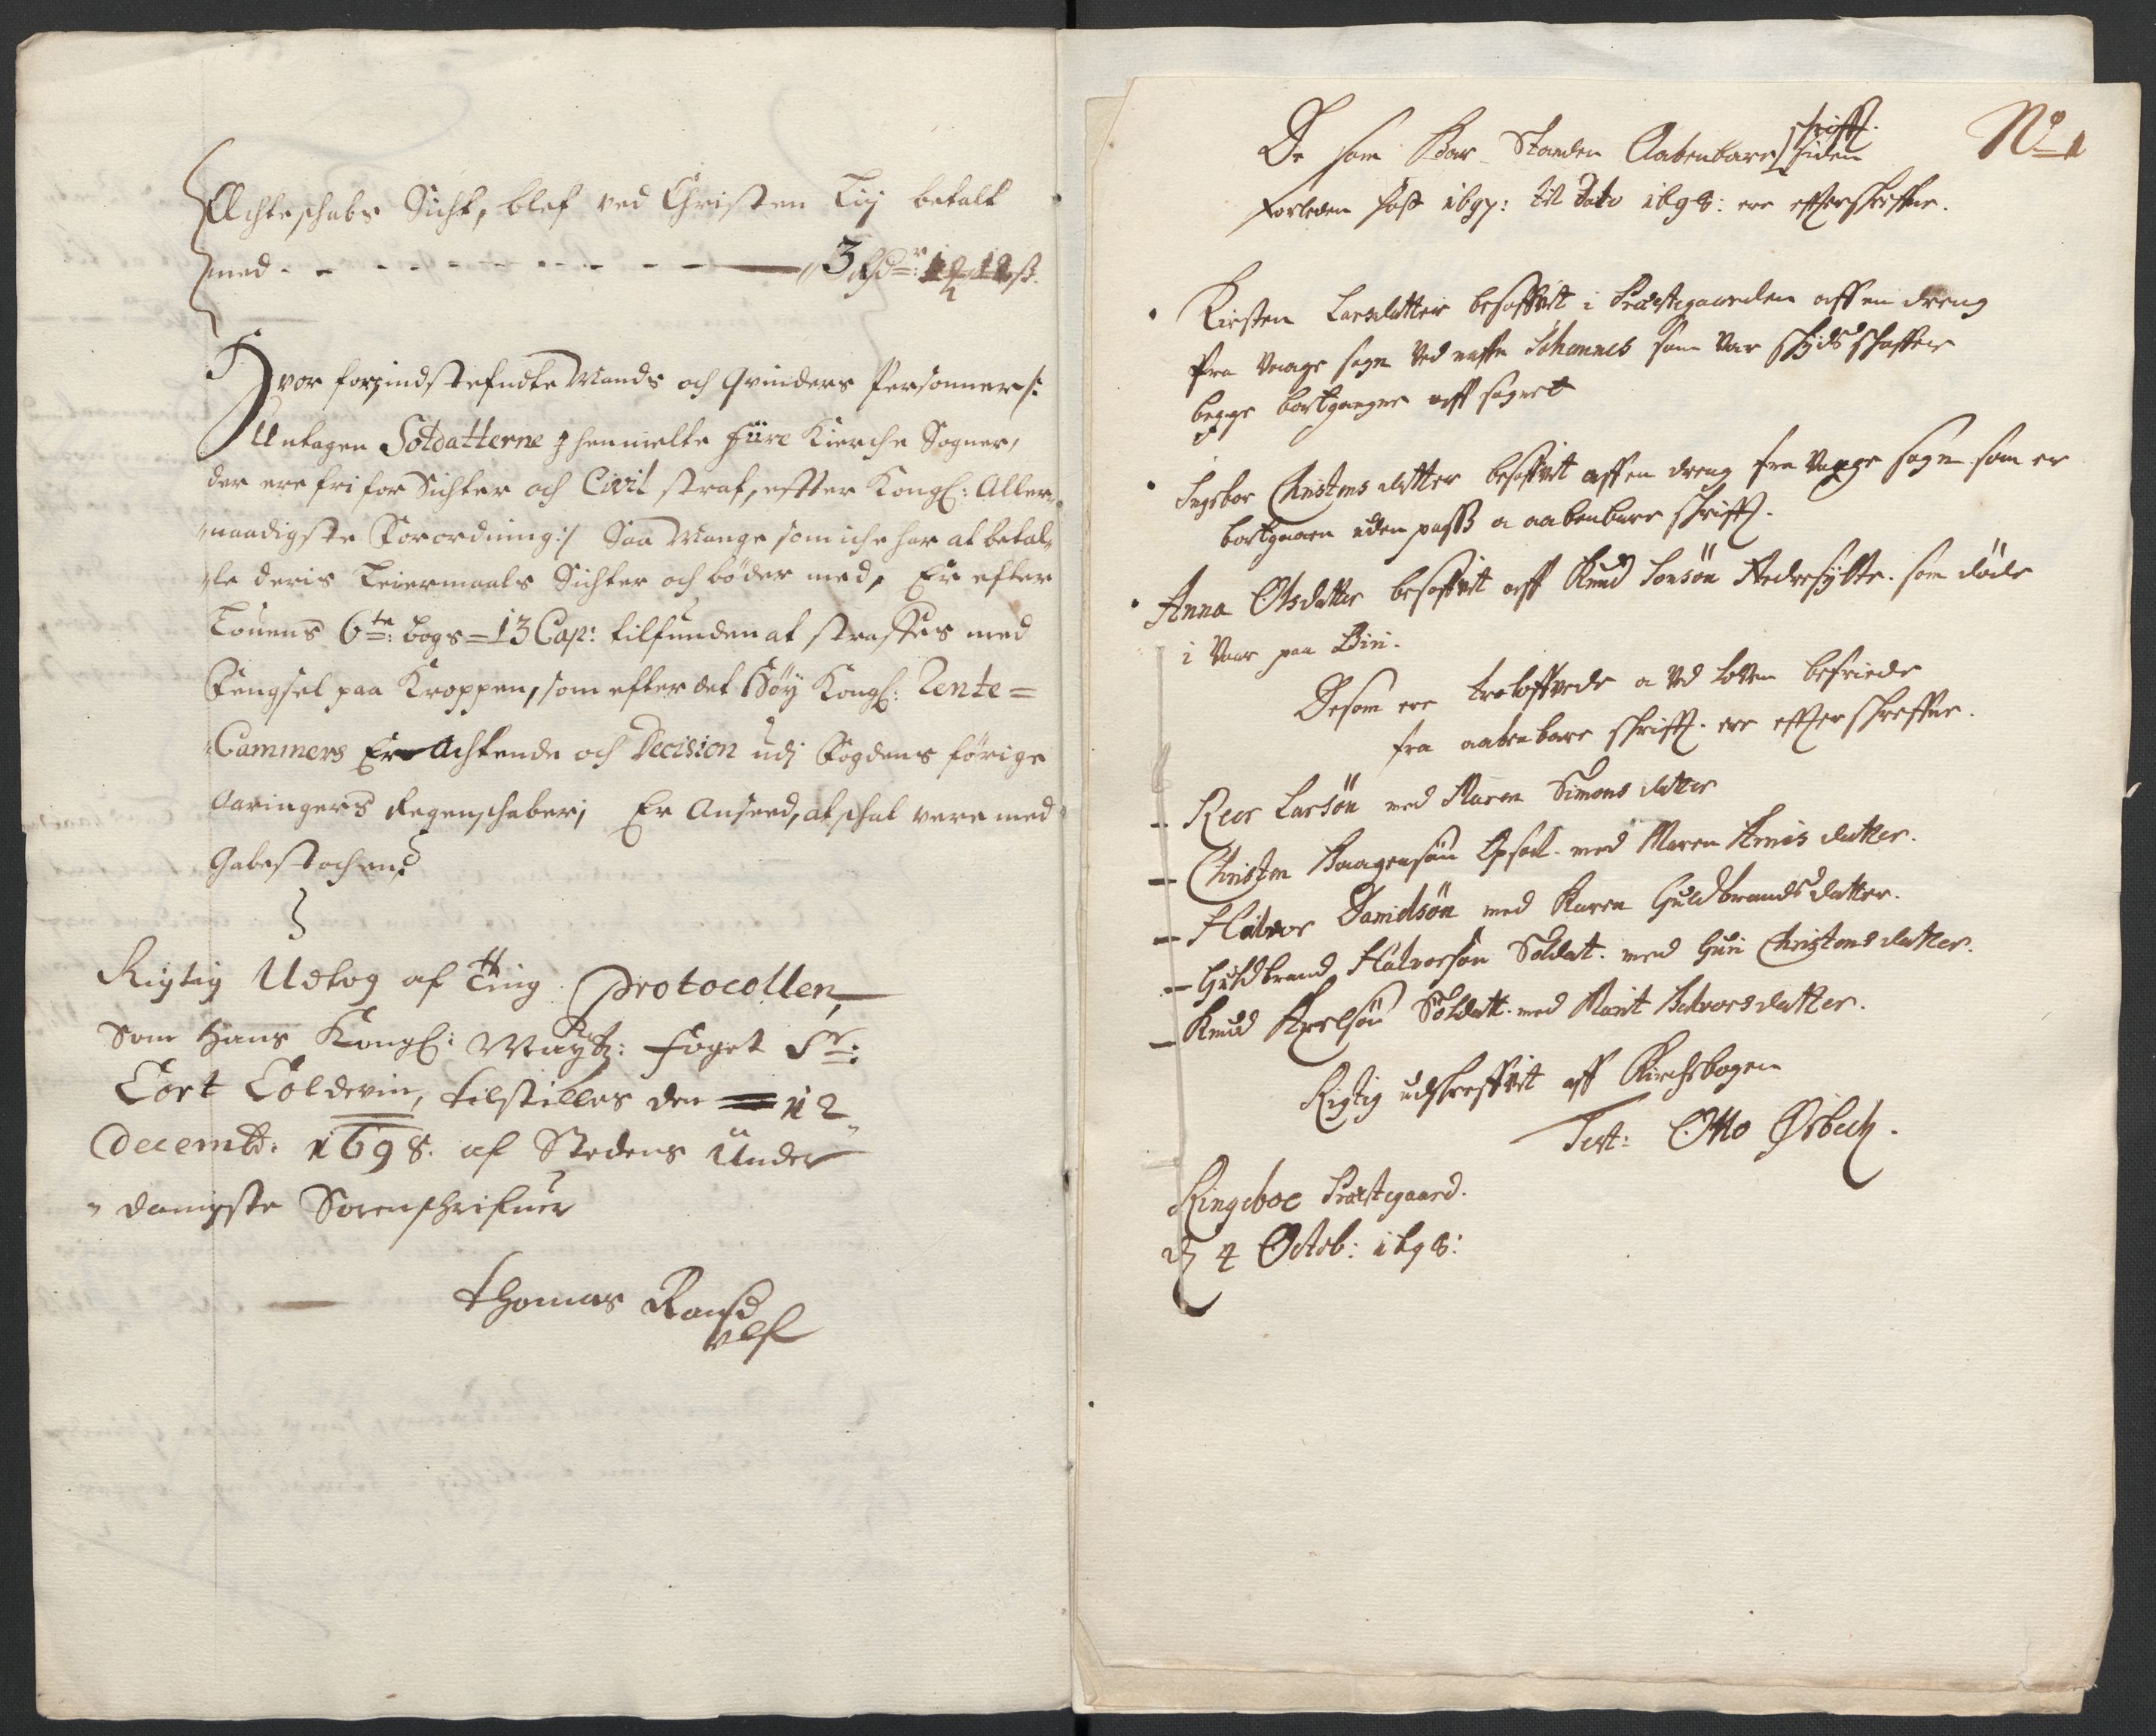 Echteschabs Sicht, blef ved Christen Tiij betalt
med - - - - - - - - - - 3 Rdr: 1 # 12 ß.
Hvor forzindstefndte Mands och Qvinders Personner /:
Untagen Soldatterne z hermelte fiire Kierche Sogner,
der ere fri for Sichter och Civil straf, effter Kongl: Aller-
naadigste Forordning :/ Saa Mange som iche har at betal-
le deris Leiermaals Sichter och bøder med, Er efter
Louens 6te: bogs = 13 Cap: tilfunden at straffes med
Fengsel paa Kroppen, som efter det Høy Kongl: Rente =
Cammers Er Achtende och Decision udj Fogdens forige
Aaringers Regenschaber; Er Anseed, at schal vere med
Gabestochen
Rigtig Udtog af Ting Protocollen,
Som Hans Kongl: Maytz: foget Sr:
Cort Coldevin, tilstilles den 12
Decembr: 1698. af Stedens Under
danigste Sorenschrifuer
Thomas Ramsd
No 1
De som Har Standen Aabenbare schrifft. siden
forleden høst 1697: til dato 1698: ere efterskreffne.
Kirsten Larsdatter besoffvit i Præstegaarden aff en dreng
fra Vaage sogn ved naffn Johannes som var skyds schaffer
begge bortgangne aff sognet
Ingebor Christensdatter besoffvit aff en dreng fra Vaage sogn som er
bortgaaen uden pass a aabenbare skrifft.
Anna Olsdatter besoffvit aff Knud Jonsøn Nedresylte. som døde
i Vaar paa Biri.
De som ere troloffvede a ved loven befriede
fra aabenbare skrifft. ere effterskreffne.
- Peer Larsøn med Maren Simonsdatter
- Christen Haagensøn Opsal. med Maren Arnisdatter.
- Halvor Davidsøn med Karen Guldbrandsdatter.
- Guldbrand Halvorsøn Soldat. med Guri Christensdatter.
- Knud Axelsøn Soldatt. med Marit Halvorsdatter.
Rigtig udskreffvit aff Kirchebogen
Test: Otto Ørbech.
Ringeboe Præstegaard.
d 4 Octob: 1698: